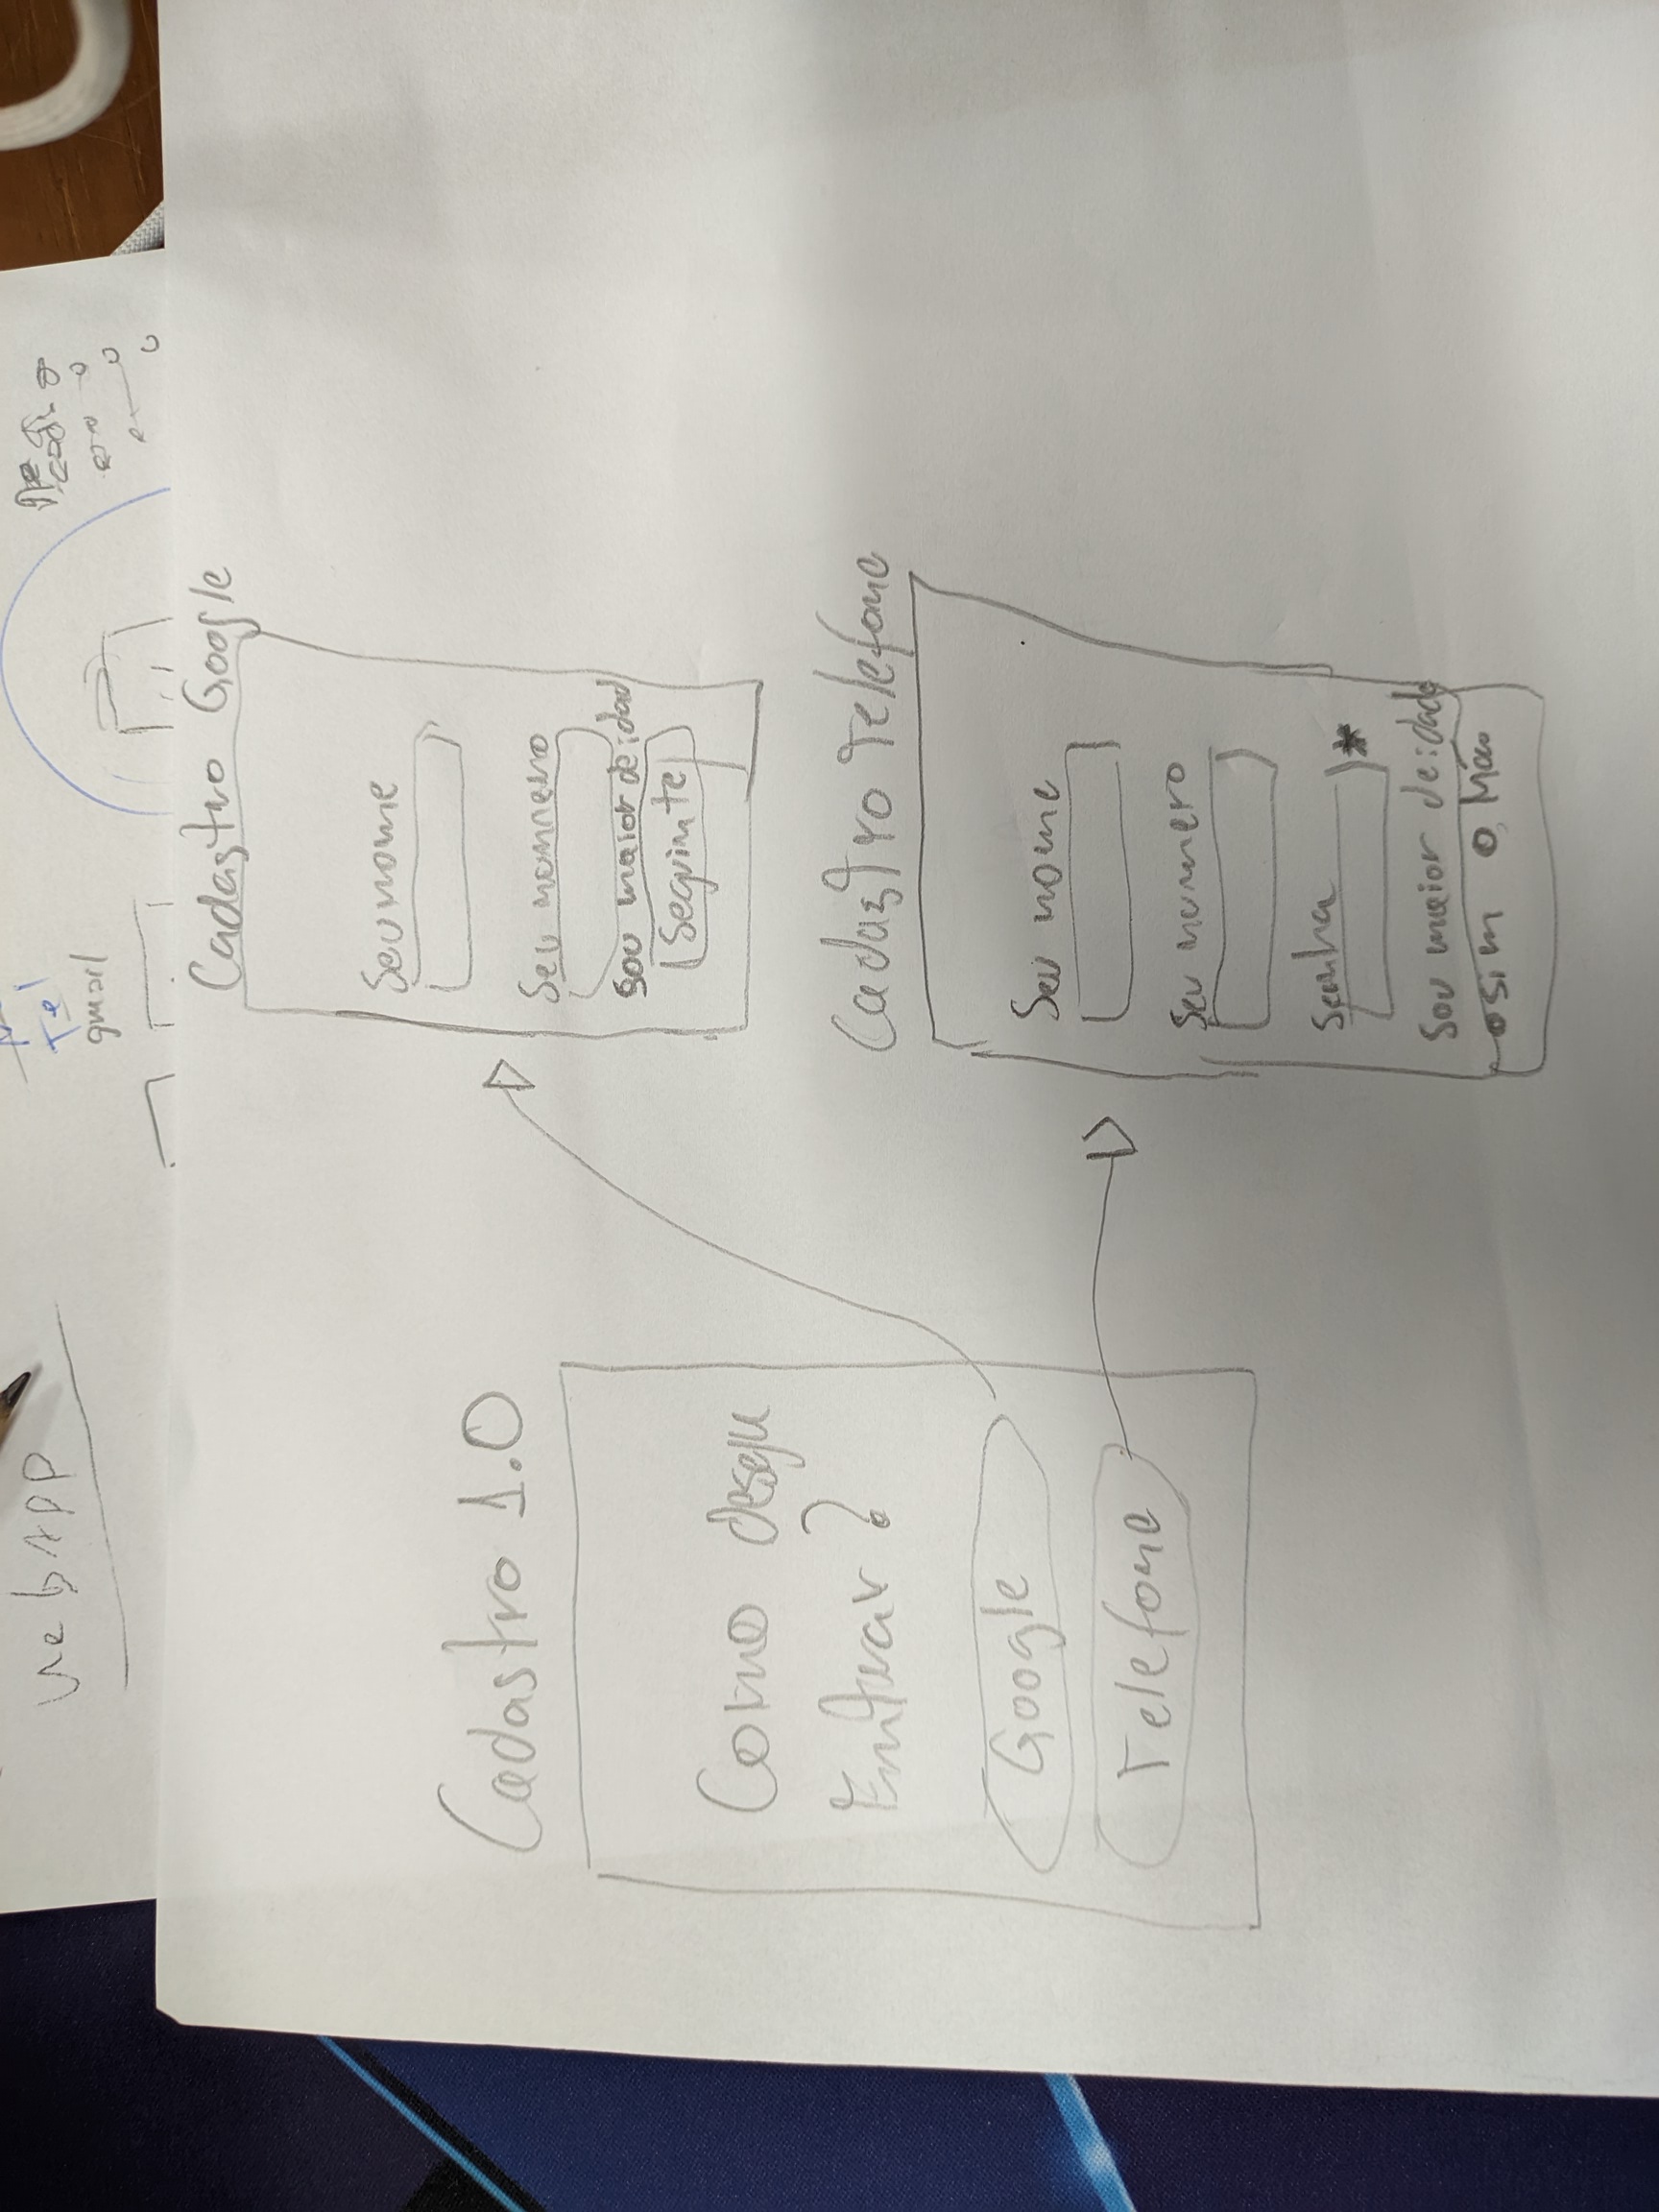 Cadastro 1.0
Como deseju
Entrar?
Google
Telefone
Cadastro Google
Seu nome
Seu nummero
Sou maior de idad
Seguinte
Cadastro Telefone
Seu nome
Seu nummero
Senha *
Sou maior de idade
o sim o Não
web APP
Tel
gmail